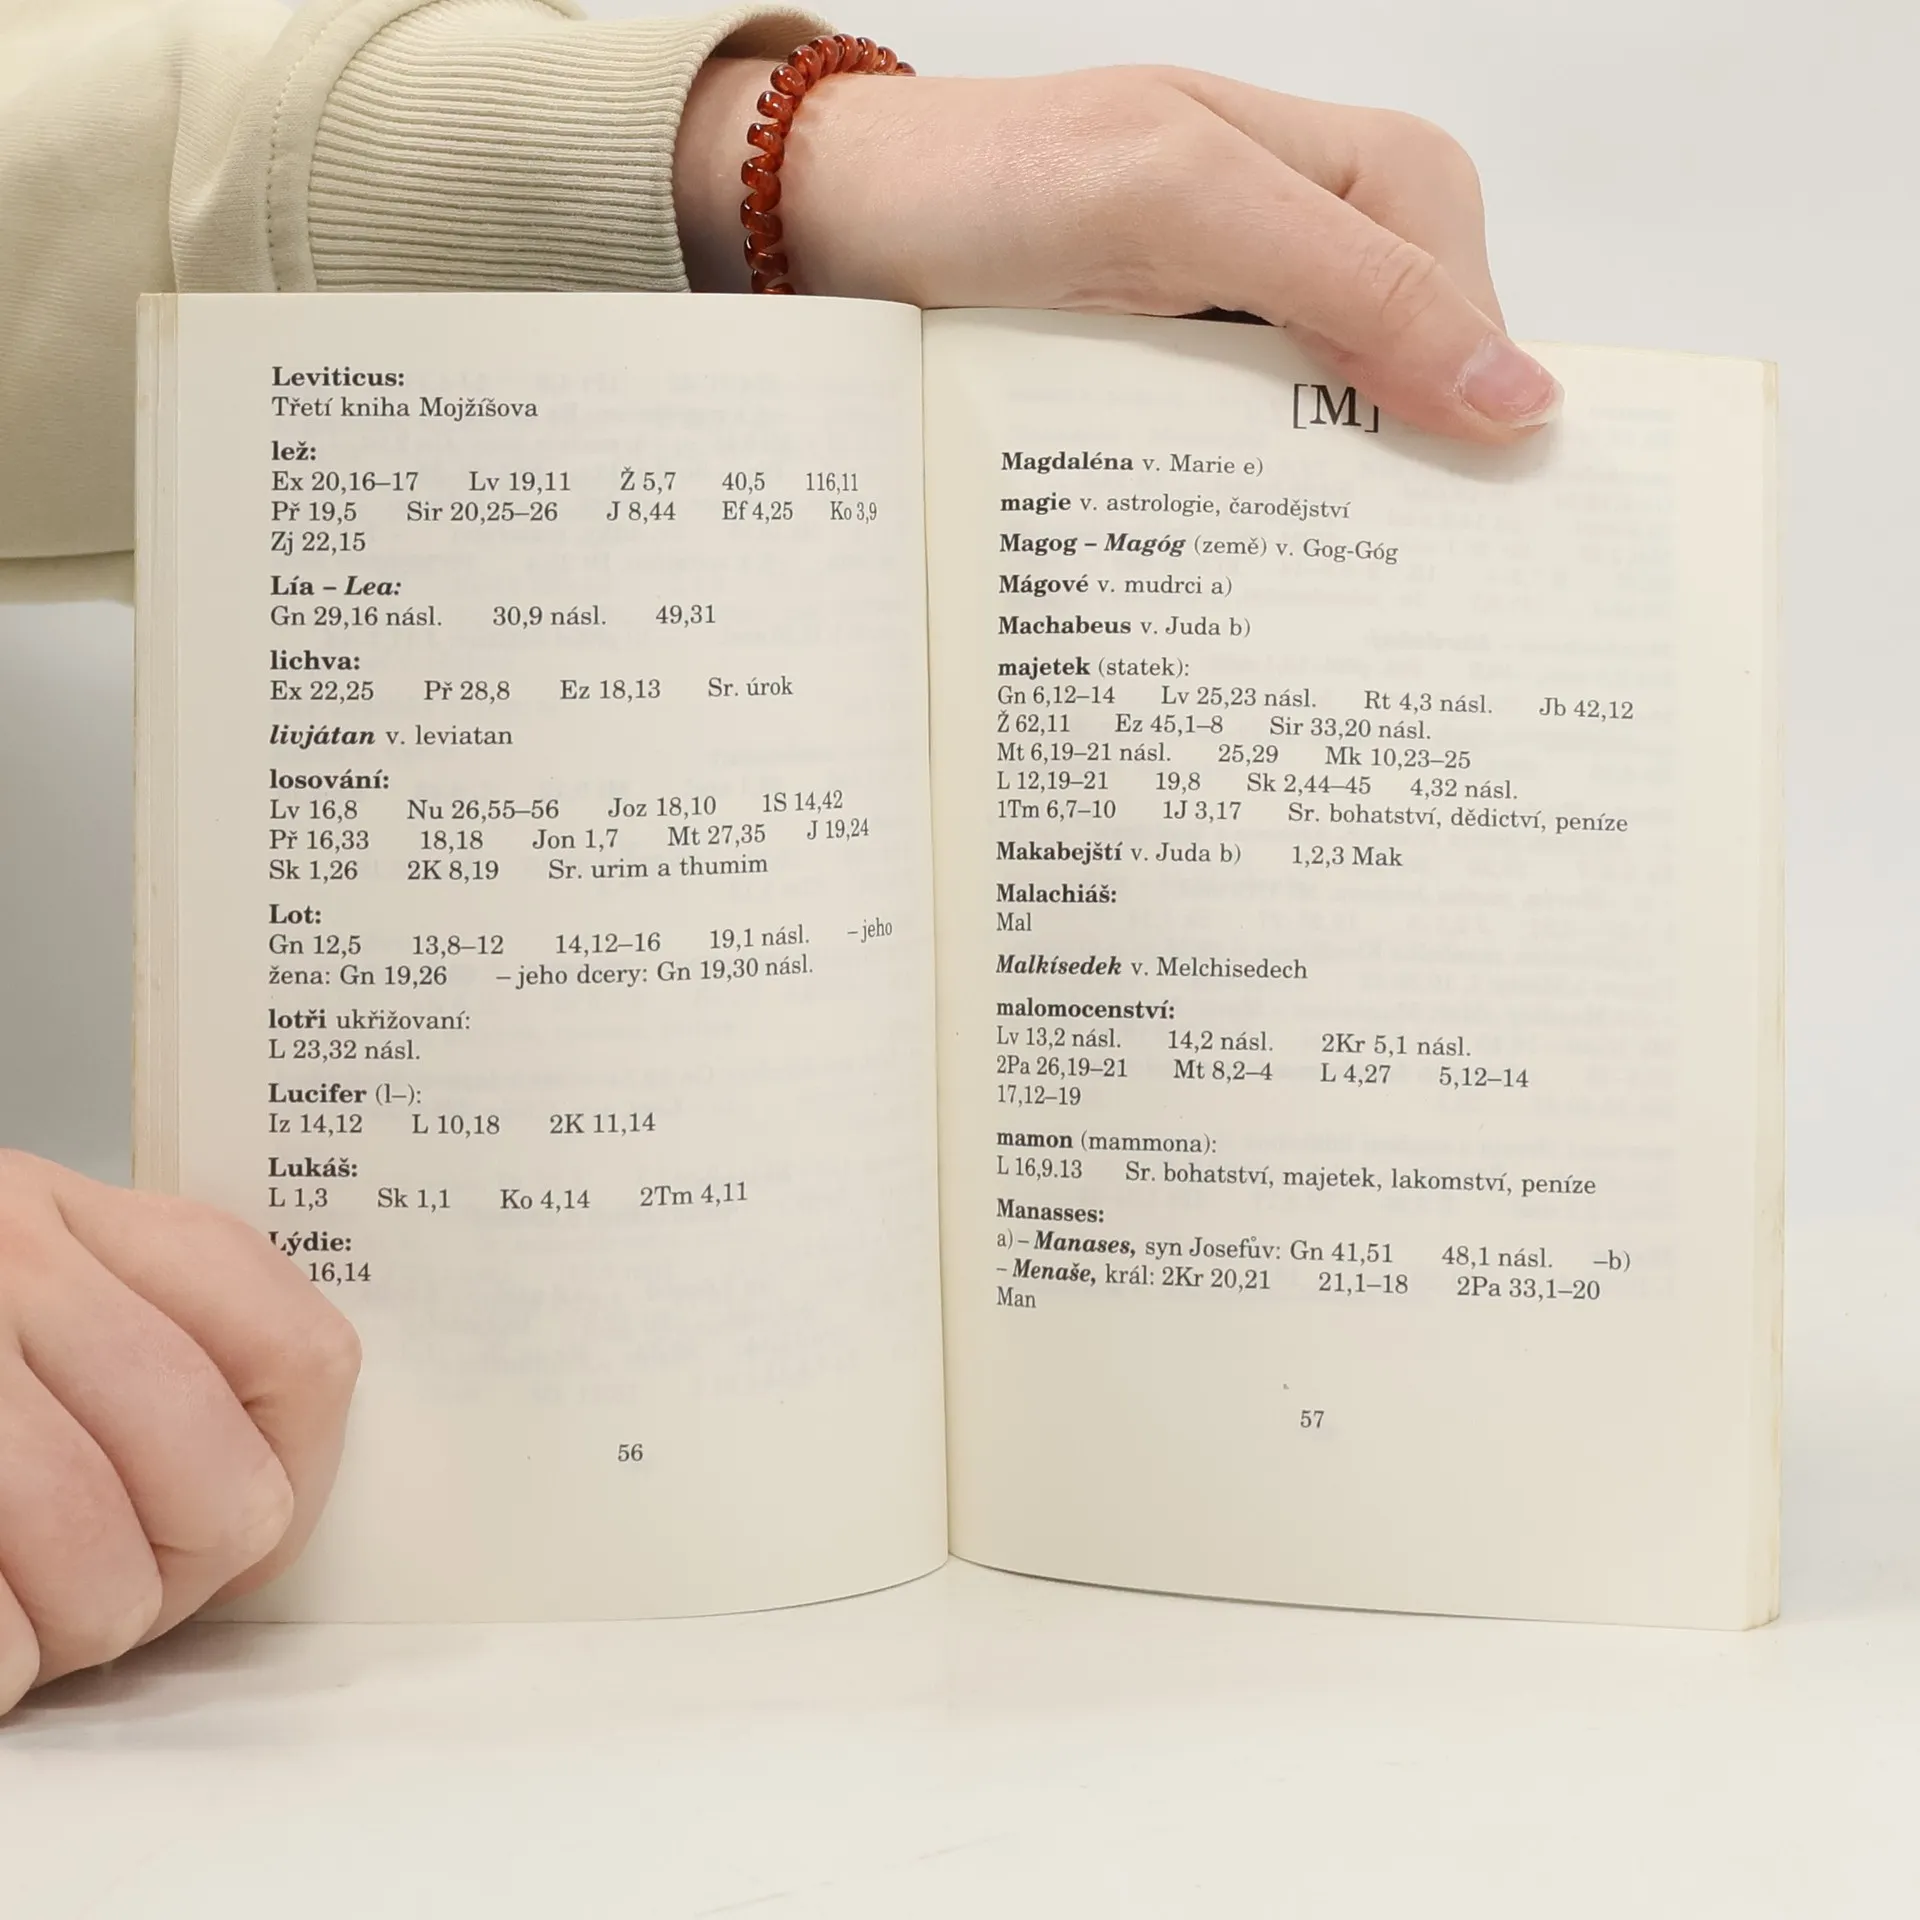 Leviticus:
Třetí kniha Mojžíšova
lež:
Ex 20,16–17 Lv 19,11 Ž 5,7 40,5 116,11
Př 19,5 Sir 20,25–26 J 8,44 Ef 4,25 Ko 3,9
Zj 22,15
Lía – Lea:
Gn 29,16 násl. 30,9 násl. 49,31
lichva:
Ex 22,25 Př 28,8 Ez 18,13 Sr. úrok
livjátan v. leviatan
losování:
Lv 16,8 Nu 26,55–56 Joz 18,10 1S 14,42
Př 16,33 18,18 Jon 1,7 Mt 27,35 J 19,24
Sk 1,26 2K 8,19 Sr. urim a thumim
Lot:
Gn 12,5 13,8–12 14,12–16 19,1 násl. – jeho
žena: Gn 19,26 – jeho dcery: Gn 19,30 násl.
lotři ukřižovaní:
L 23,32 násl.
Lucifer (l–):
Iz 14,12 L 10,18 2K 11,14
Lukáš:
L 1,3 Sk 1,1 Ko 4,14 2Tm 4,11
Lýdie:
16,14
56
[M]
Magdaléna v. Marie e)
magie v. astrologie, čarodějství
Magog – Magóg (země) v. Gog-Góg
Mágové v. mudrci a)
Machabeus v. Juda b)
majetek (statek):
Gn 6,12–14 Lv 25,23 násl. Rt 4,3 násl. Jb 42,12
Ž 62,11 Ez 45,1–8 Sir 33,20 násl.
Mt 6,19–21 násl. 25,29 Mk 10,23–25
L 12,19–21 19,8 Sk 2,44–45 4,32 násl.
1Tm 6,7–10 1J 3,17 Sr. bohatství, dědictví, peníze
Makabejští v. Juda b) 1,2,3 Mak
Malachiáš:
Mal
Malkísedek v. Melchisedech
malomocenství:
Lv 13,2 násl. 14,2 násl. 2Kr 5,1 násl.
2Pa 26,19–21 Mt 8,2–4 L 4,27 5,12–14
17,12–19
mamon (mammona):
L 16,9.13 Sr. bohatství, majetek, lakomství, peníze
Manasses:
a) – Manases, syn Josefův: Gn 41,51 48,1 násl. –b)
– Menaše, král: 2Kr 20,21 21,1–18 2Pa 33,1–20
Man
57